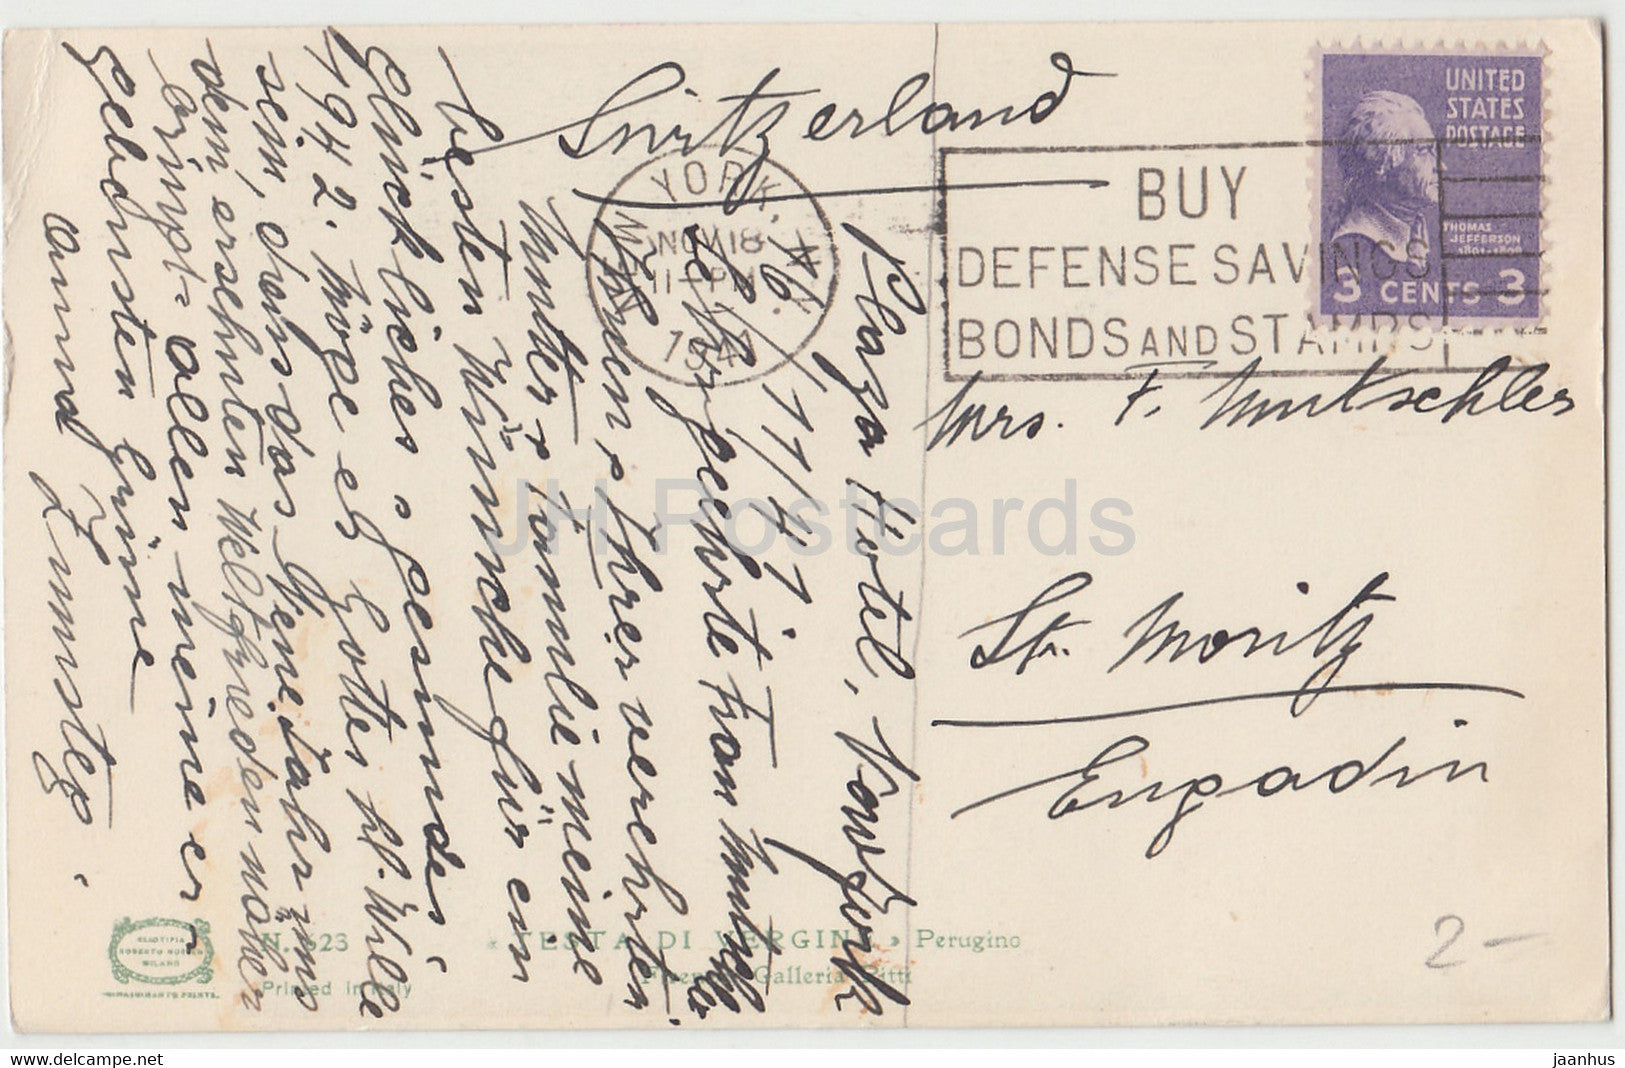 Plaza Hotel, Newyork
d. 16./11/41
Sehr geehrte Frau Mutschler
Ihnen, Ihrer verehrten
Mutter & Familie meine
besten Wünsche für ein
Glückliches & gesundes
1942. Möge es Gottes hl. Wille
sein, dass das Neue Jahr uns
dem ersehnten Weltfrieden näher
bringt = allen meine er-
gebensten Grüsse
Switzerland
Mrs. F. Mutschler
St. Moritz
Engadin
NEW YORK, N.Y.
NOV 18
11-PM
1941
BUY
DEFENSE SAVINGS
BONDS AND STAMPS
UNITED
STATES
POSTAGE
THOMAS
JEFFERSON
1801-1809
3 CENTS 3
N. 623
« TESTA DI VERGINE » Perugino
Firenze - Galleria Pitti
Printed in Italy
MILANO
2-
JH Postcards
www.delcampe.net
jaanhus